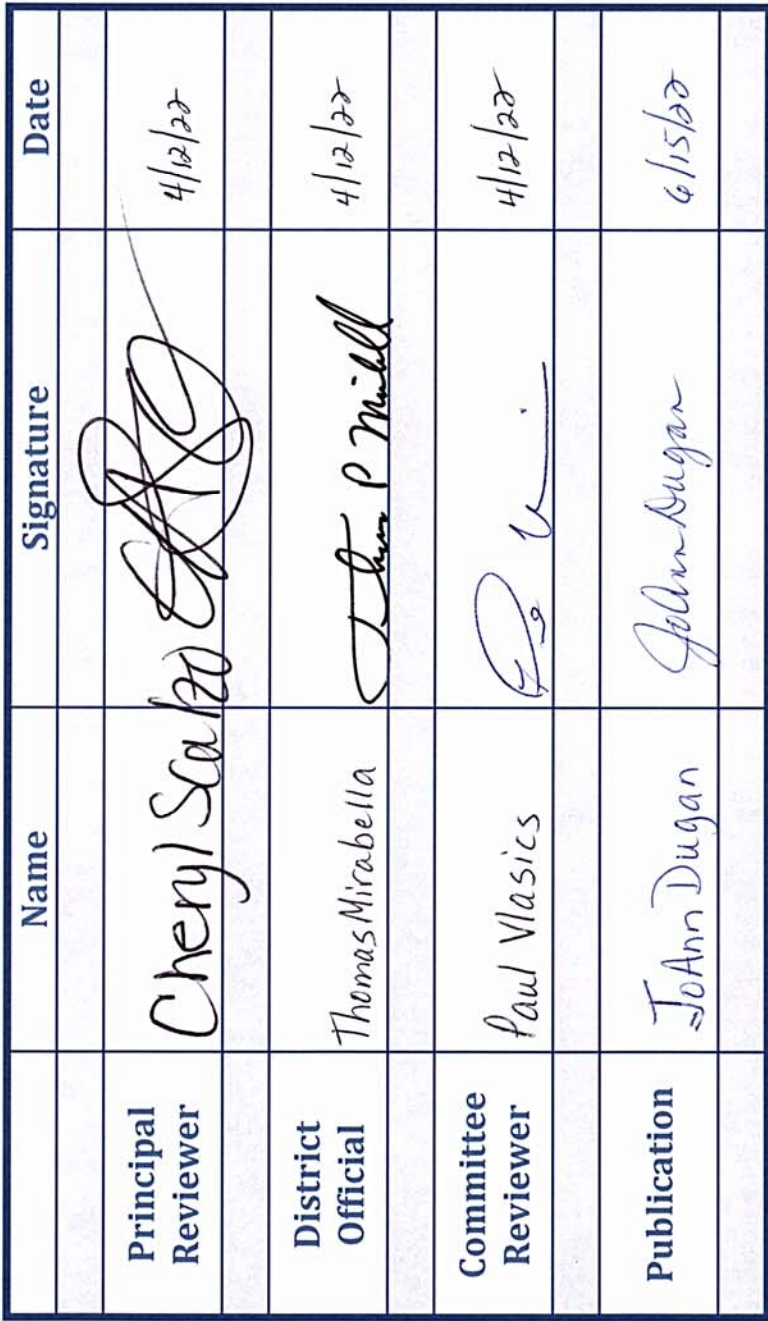 Name Signature Date
Principal
Reviewer
Cheryl Scalzo 4/12/22
District
Official
Thomas Mirabella 4/12/22
Committee
Reviewer
Paul Vlasics 4/12/22
Publication
JoAnn Dugan JoAnn Dugan 6/15/22